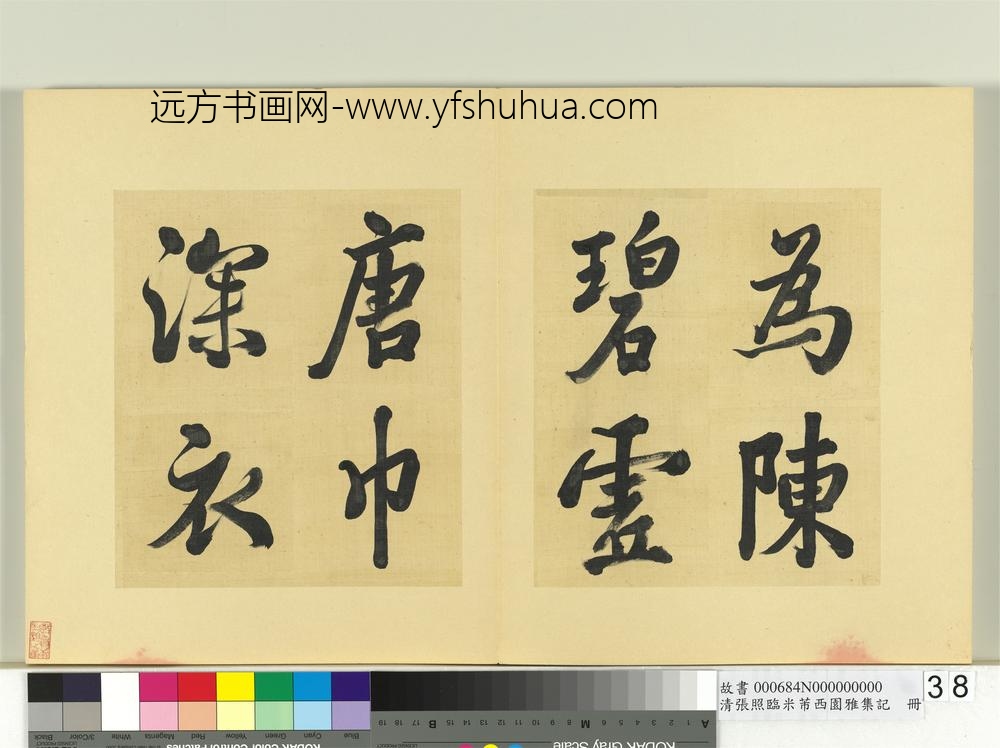 远方书画网-www.yfshuhua.com
為陳
碧虛
唐巾
深衣
故書 000684N000000000
清張照臨米芾西園雅集記 冊
38
Black
3/Color
White
Magenta
Red
Yellow
Green
Cyan
Blue
KODAK Color Control Patches
KODAK Gray Scale
A 1 2 3 4 5 6 M 8 9 10 11 12 13 14 15 B 17 18 19